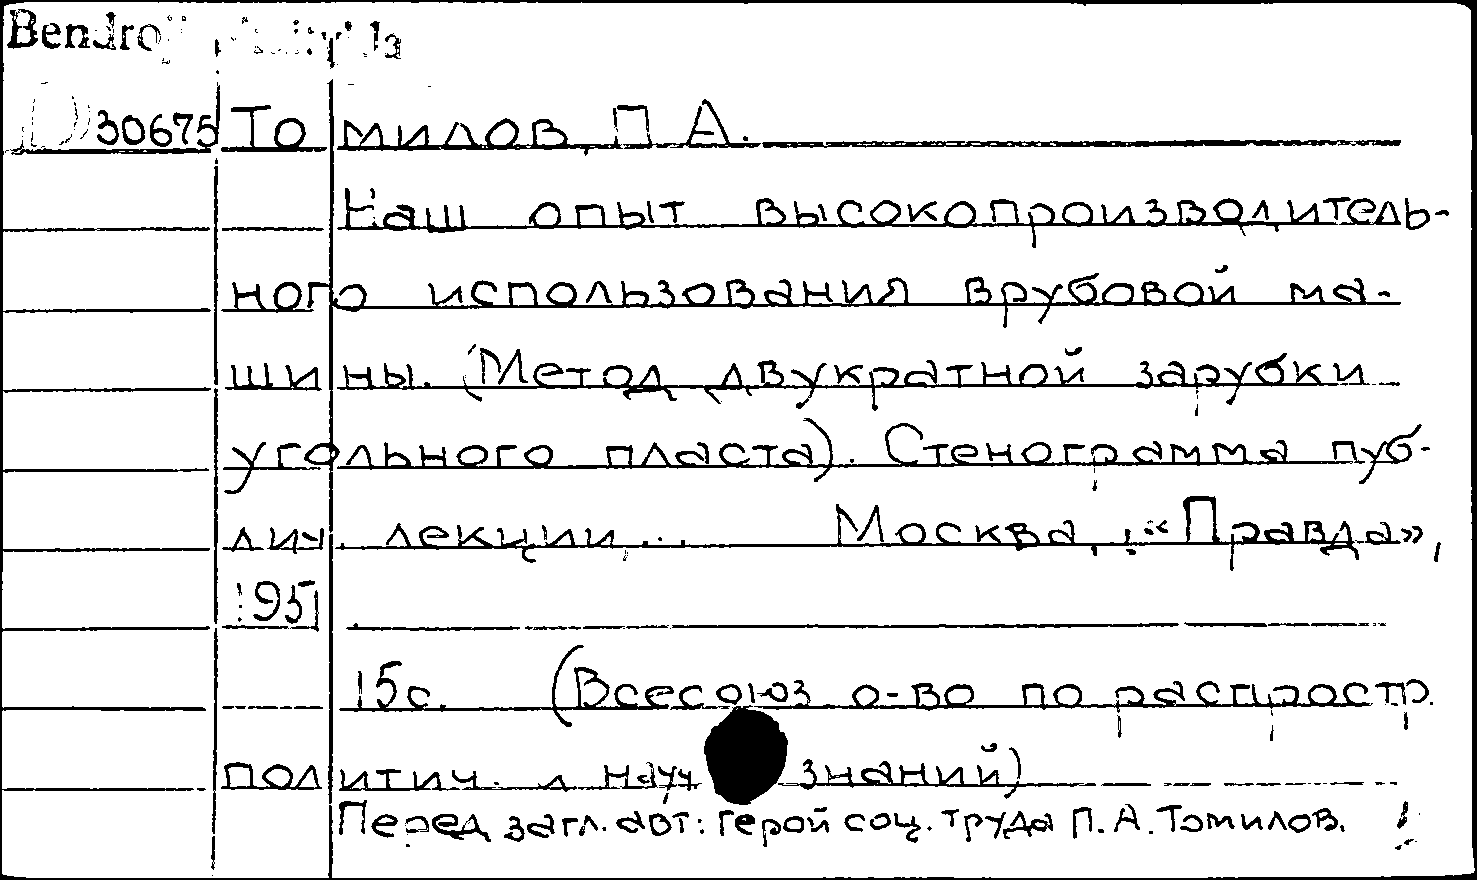 Bendroji
D 30675 Томилов, П. А.
Наш опыт высокопроизводитель-
ного использования врубовой ма-
шины. (Метод двукратной зарубки
угольного пласта). Стенограмма пуб-
лич. лекции... Москва, "Правда",
1951.
15с. (Всесоюз о-во по распростр.
политич. и науч знаний)
Перед загл. авт: Герой соц. труда П. А. Томилов.